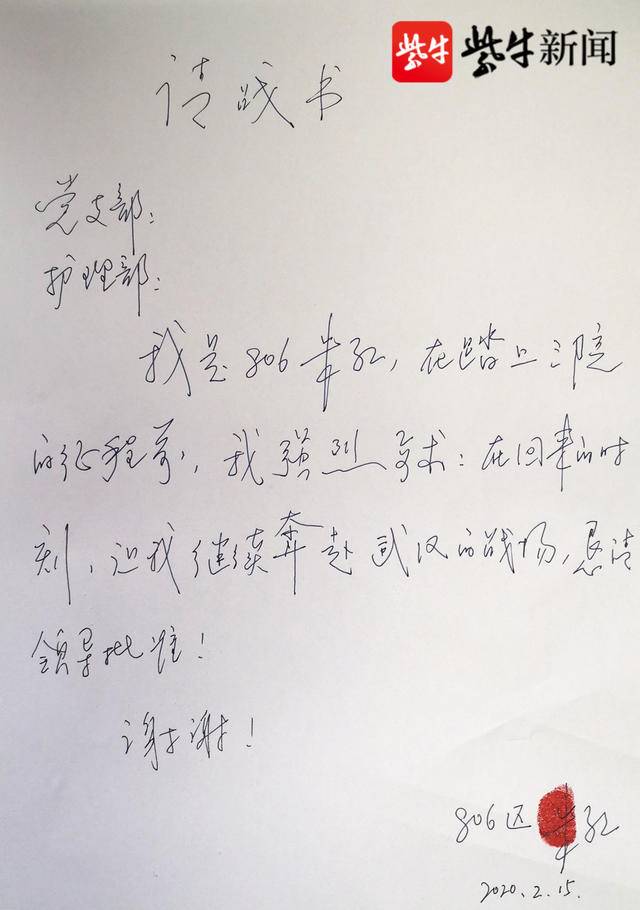 紫牛 紫牛新闻
请战书
党支部:
护理部:
我是806 单红,在踏上三院
的征程前,我强烈要求:在回来的时
刻,让我继续奔赴武汉的战场,恳请
领导批准!
谢谢!
806区 单红
2020.2.15.